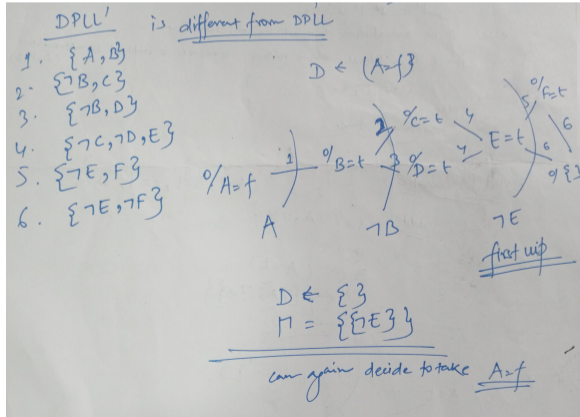 DPLL' is different from DPLL
1. {A,B}
2. {¬B,C}
3. {¬B,D}
4. {¬C,¬D,E}
5. {¬E,F}
6. {¬E,¬F}
D ← {A=f}
0/A=f
1
0/B=t
2
0/C=t
4
3
0/D=t
4
E=t
5
0/F=t
6
6
0/{}
A
¬B
¬E
first uip
D ← {}
Γ = {{¬E}}
can again decide to take A=f